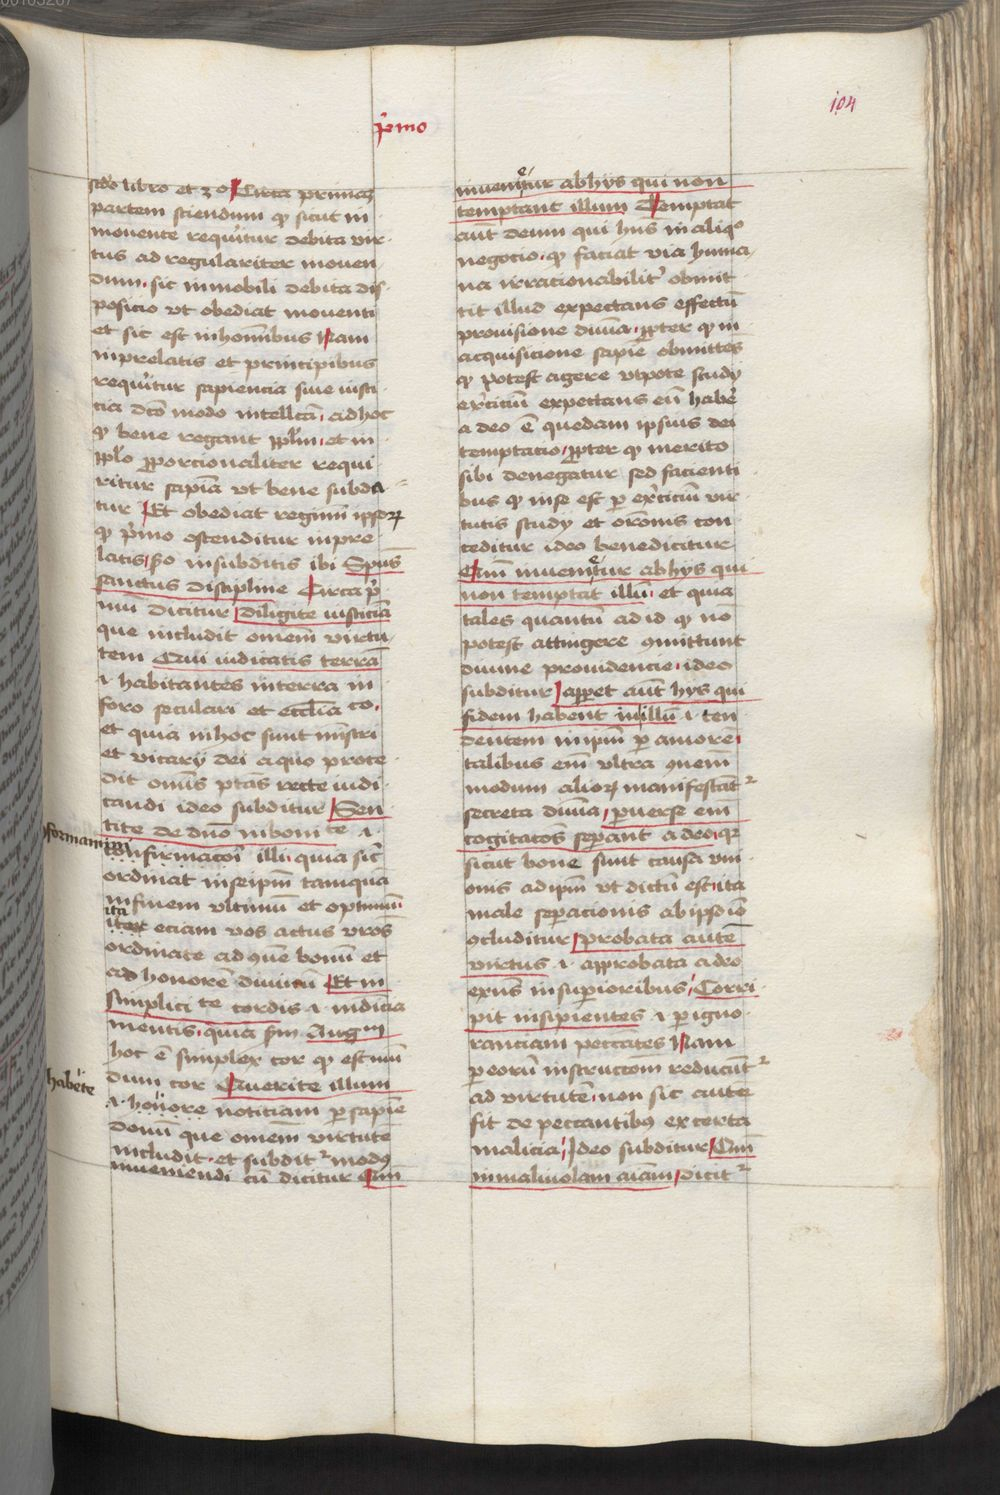 00103207
104
p̄mo
scd̄o libro et 3o Circa primaꝫ
partem sciendum ꝙ sicut in
mouente requiritur debita vir
tus ad regulariter mouen
dum, sic in mobili debita dis
posicio vt obediat mouenti
et sic est in hominibus Nam
in prelatis et principibus
requiritur sapiencia siue iusti
cia dc̄o modo intellc̄a, ad hoc
ꝙ bene regant ppl̄m, et in
ppl̄o ꝓporcionaliter requi
ritur sapīa vt bene subda
tur Et obediat regimī ipsoꝝ
ꝙ p̄mo ostenditur in pre
latis, s̄o in subditis ibi Spūs
sanctus discipline Circa p̄
mū dicitur Diligite iusticiā
que includit omem̄ virtu
tem Qui iudicatis terrā
.i. habitantes in terra in
foro seculari et eccl̄ia co,
et quia in hoc sunt mīstri
et vicarij dei a quo proce
dit om̄is ptās recte iudi
candi ideo subditur Sen
tite de dn̄o in boni te .i.
formacōī
confirmacōī illi quia sic̄
ordinat in seip̄m tamquā
in finem vltimū et optimū
ita
eciam vos actus vr̄os
ordinate ad ꝯūe bonū et
ad honorē diuinū Et in
simplici te cordis .i. mūdicia
mentis, quia sm̄ Augm̄
hoc ē simplex cor ꝙ est mū
dum cor Querite illum
habēte
.i. honore noticiam p sapiē
donū que omem̄ virtutē
includit, et subdit᷑ modꝰ
inueniendi cū dicitur Qm̄
inuenitur ab hijs qui non
temptant illum Temptat
aūt deum qui hn̄s in aliqo
negocio, ꝙ faciat via huma
na irracionabilit̄ obmit
tit illud expectans effectū
prouisione diuīa, ꝓpter ꝙ in
acquisicione sapiē obmittēs
ꝙ potest agere vtpote study
ex̄ciciū expectans eū habē
a deo ē quedam ipsius dei
temptacio, ꝓpter ꝙ merito
sibi denegatur sed facienti
bus ꝙ in se est p ex̄ciciū vir
tutis study et orōnis con
ceditur ideo benedicitur
Qm̄ inuenitur ab hijs qui
non temptāt illū, et quia
tales quantū ad id ꝙ nō
potest attingere ꝯmittunt
diuine prouidencie, ideo
subditur apparet aūt hijs qui
fidem habent in illū .i. ten
dentem in ip̄m p amorē,
talibus em̄ vltra ꝯmunem
modum alioꝝ manifestāt᷑
secreta diuīa, puerse em̄
cogitacōs sepant a deo, qꝛ
sicut bone sunt causa vni
onis ad ip̄m vt dictū est, ita
male sepacionis ab ipso īo
ꝯcluditur, probata autē
virtus .i. approbata a deo
exn̄s in supioribus, Corri
pit insipientes .i. p igno
ranciam peccātes Nam
p eorū instructōm reducūt᷑
ad virtutē, non sic autē
fit de peccantibꝰ ex certa
malicia, Ideo subditur, Qm̄
in maliuolam aīam, dicit᷑